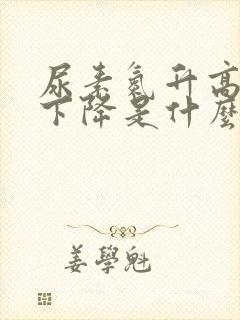 尿素氮升高
下降是什麼
姜學魁